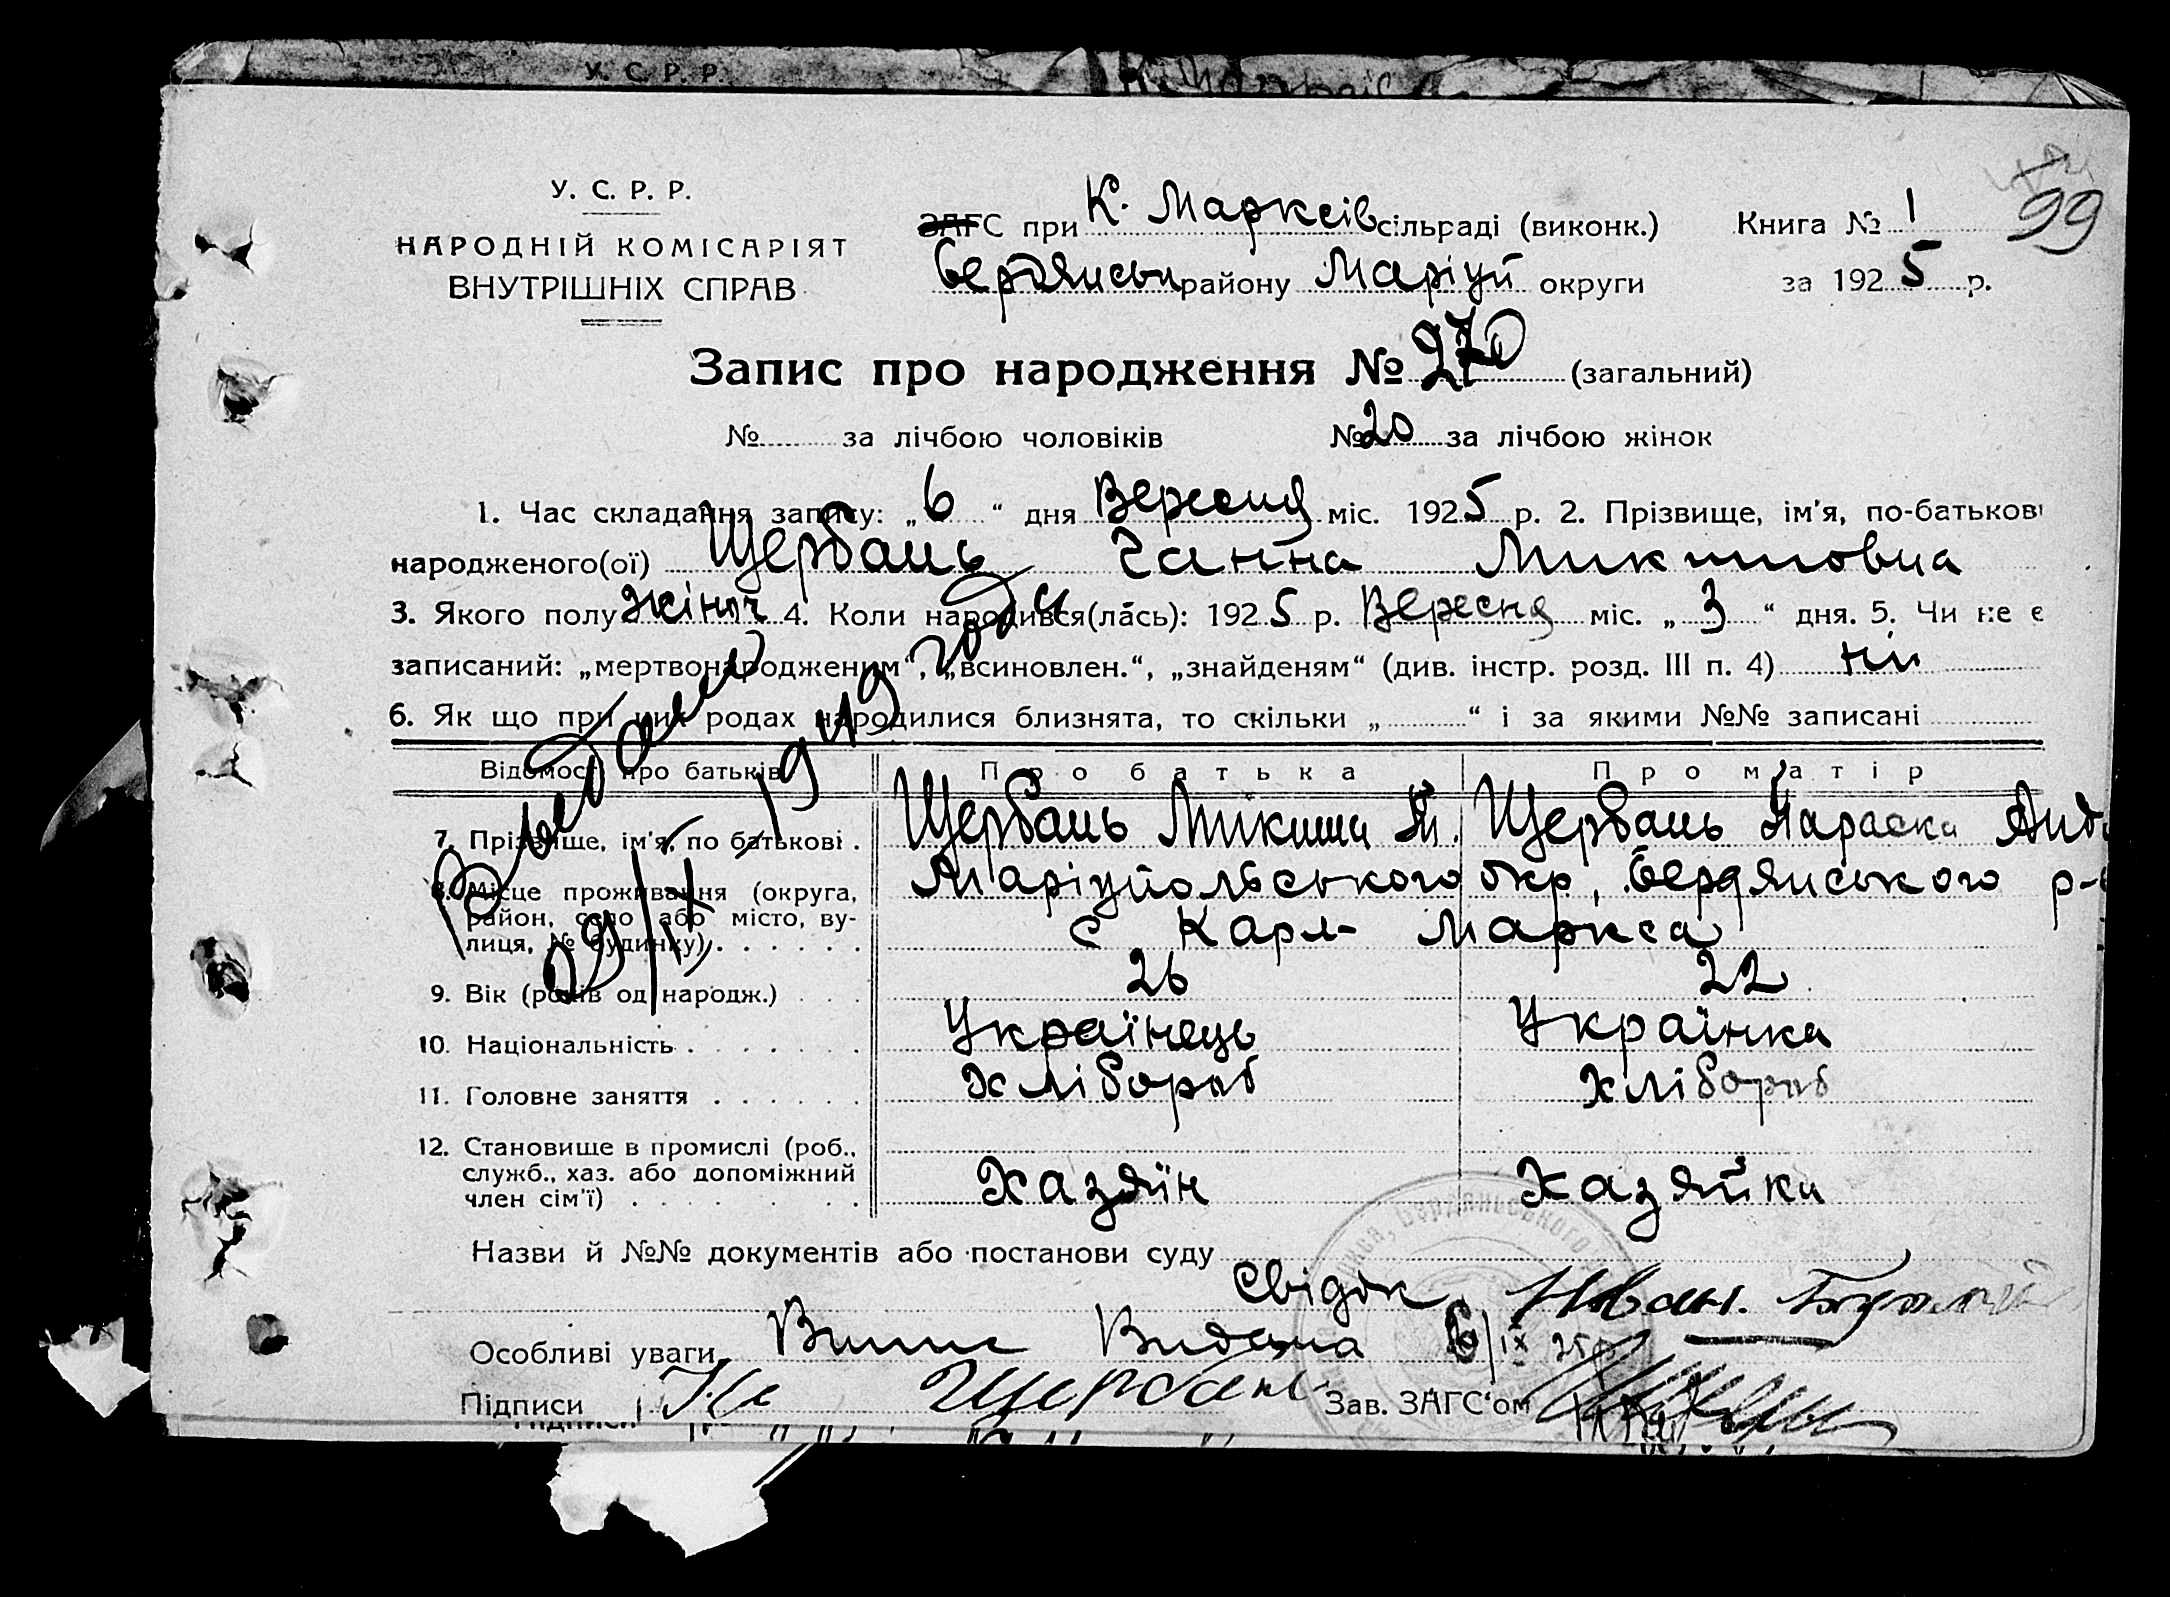 У. С. Р. Р.
У. С. Р. Р.
НАРОДНІЙ КОМІСАРІЯТ
ВНУТРІШНІХ СПРАВ
ЗАГС при К. Марксів сільраді (виконк.) Книга № 1
99
Бердянськ району Маріуп округи за 1925 р.
Запис про народження № 270 (загальний)
№ за лічбою чоловіків № 20 за лічбою жінок
1. Час складання запису: „6“ дня Вересня міс. 1925 р. 2. Прізвище, ім'я, по-батькові
народженого(ої) Щербань Ганна Микитовна
3. Якого полу жіноч 4. Коли народився(лась): 1925 р. Вересня міс. „3“ дня. 5. Чи не є
записаний: „мертвонародженим“, „всиновлен.“, „знайденям“ (див. інстр. розд. III п. 4) ні
6. Як що при цих родах народилися близнята, то скільки „ “ і за якими №№ записані
Відомості про батьків Про батька Про матір
7. Прізвище, ім'я, по батькові . Щербань Микита М. Щербань Параска Анд
8. Місце проживання (округа, Маріупольського окр, Бердянського р-
район, село або місто, ву-
лиця, № будинку) . . . . . . с Карл- Маркса
9. Вік (років од народж.) . . . 26 22
10. Національність . . . . . . . Українець Українка
11. Головне заняття . . . . . . Хлібороб Хлібороб
12. Становище в промислі (роб.,
служб., хаз. або допоміжний Хазяїн Хазяйка
член сім'ї) . . . . . . .
29/IX 1949 году
Назви й №№ документів або постанови суду
Свідок Иван.
Особливі уваги Випис Видана 6/IX 25р
Підписи Щербань Зав. ЗАГС'ом
Бердянського
Підписи